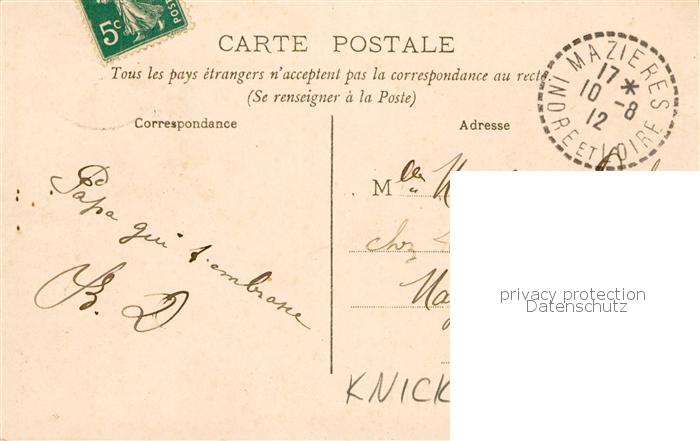 5c
POSTES
CARTE POSTALE
Tous les pays étrangers n'acceptent pas la correspondance au recto
(Se renseigner à la Poste)
MAZIERES
17 *
10 - 8
12
INDRE ET LOIRE
Correspondance
Adresse
Papa qui t'embrasse
B. D
Mlle
chez
KNICK
privacy protection
Datenschutz